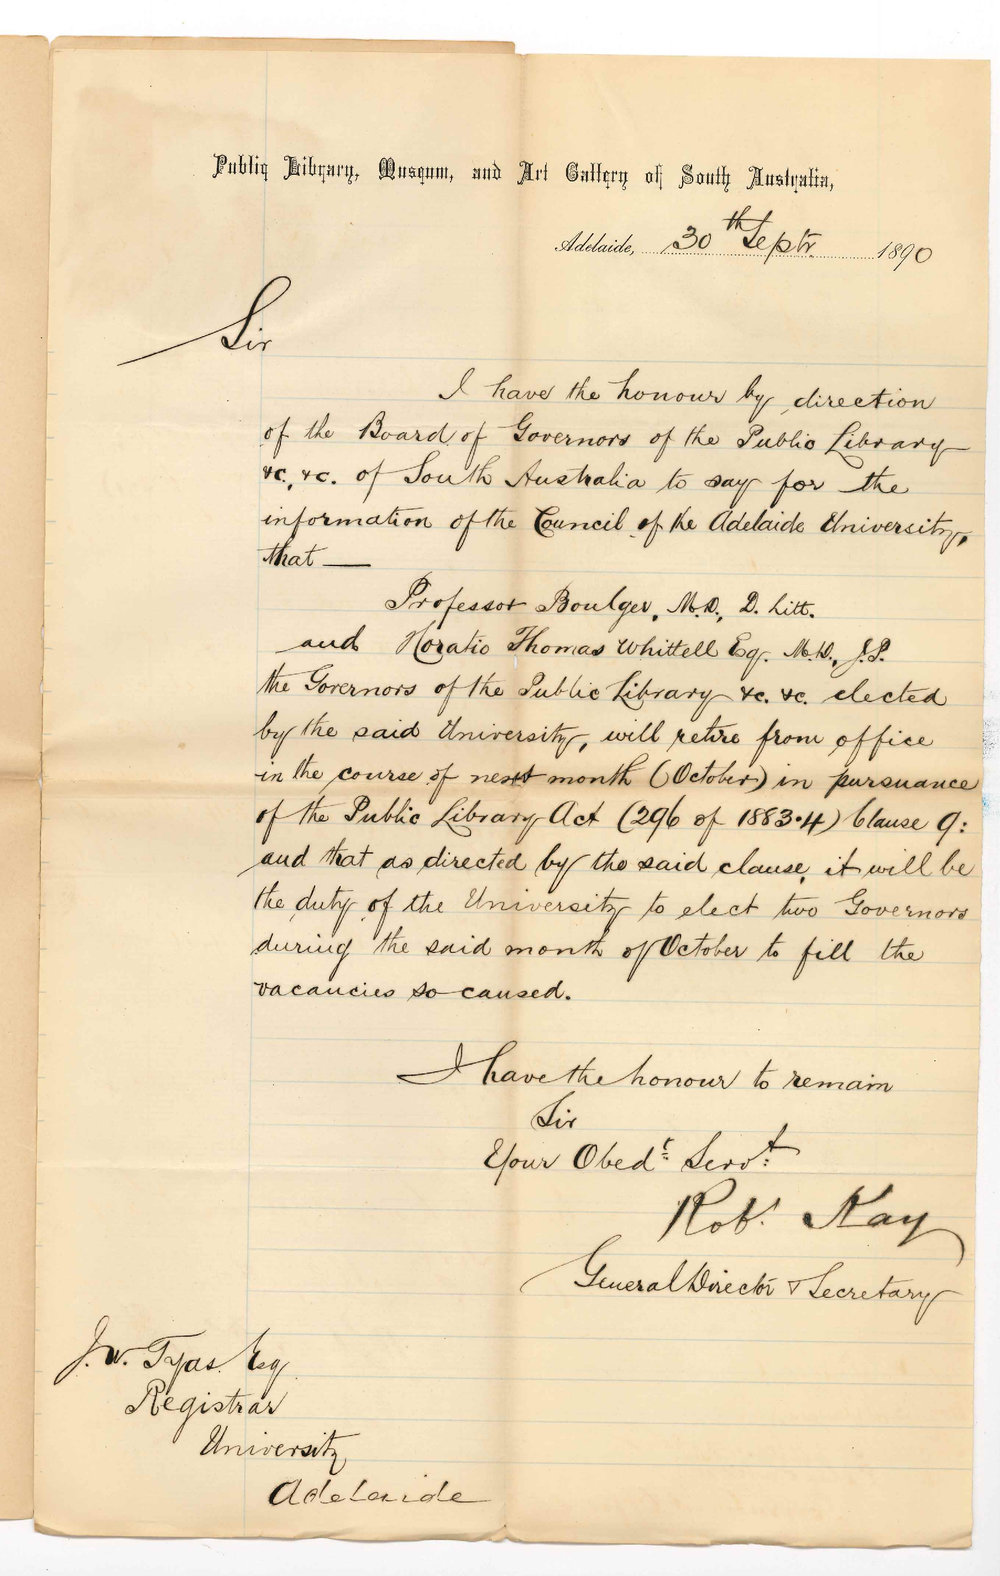 Public Library, Museum, and Art Gallery of South Australia,
Adelaide, 30th Septr. 1890
Sir
I have the honour by direction
of the Board of Governors of the Public Library
&c., &c. of South Australia to say for the
information of the Council of the Adelaide University,
that —
Professor Boulger, M.D., D. Litt.
and Horatio Thomas Whittell Esq. M.D., J.P.
the Governors of the Public Library &c. &c. elected
by the said University, will retire from office
in the course of next month (October) in pursuance
of the Public Library Act (296 of 1883·4) Clause 9:
and that as directed by the said clause, it will be
the duty of the University to elect two Governors
during the said month of October to fill the
vacancies so caused.
I have the honour to remain
Sir
Your Obedt. Servt.
Robt. Kay
General Director & Secretary
J. W. Tyas Esq
Registrar
University
Adelaide